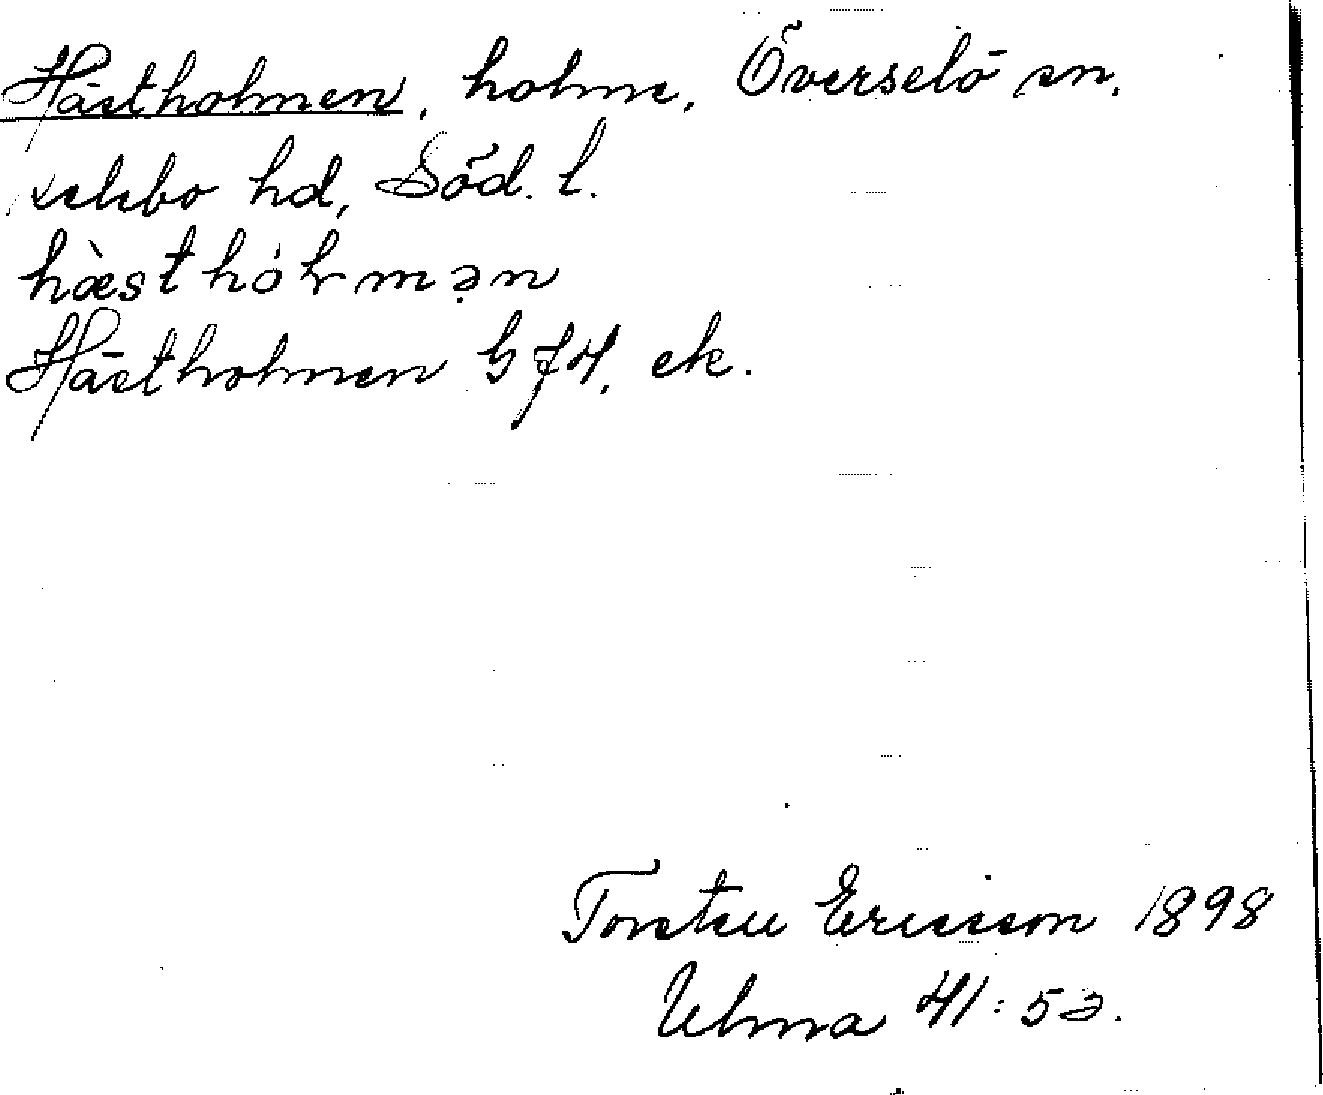 Hästholmen, holme, Överselö sn.
selebo hd, Söd. l.
hæ̀sthólmən
Hästholmen G 74, ek.
Torsten Ericsson 1898
Ulma 41:52.